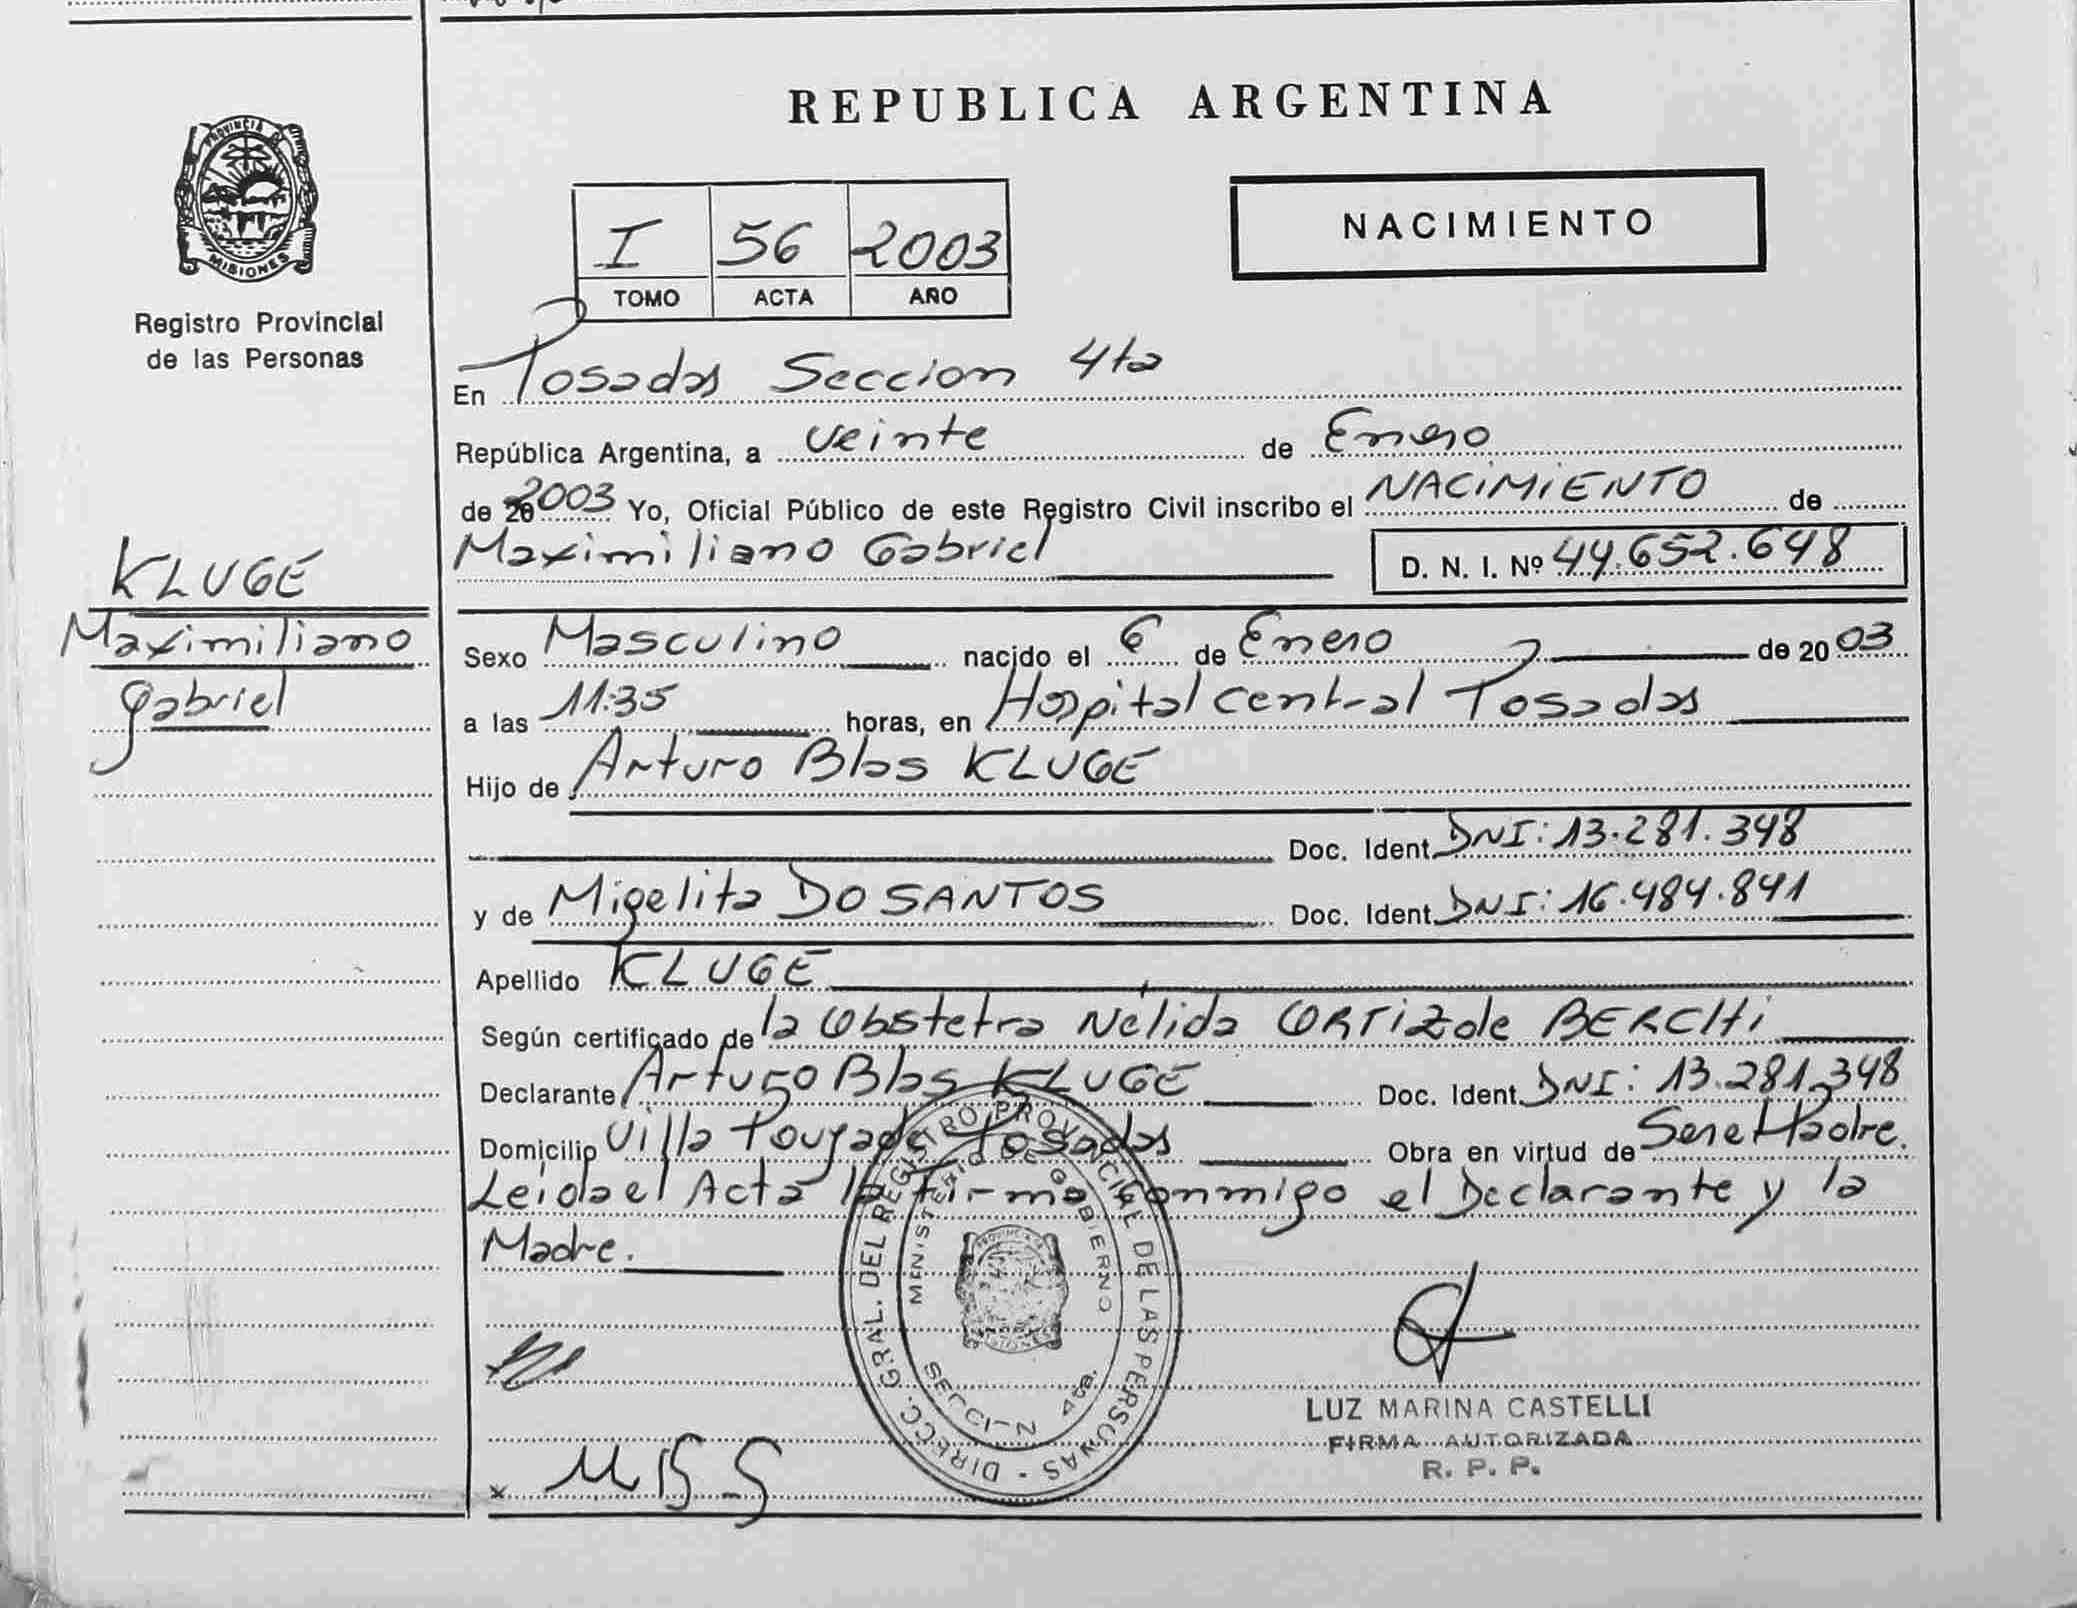 REPUBLICA ARGENTINA
PROVINCIA DE
MISIONES
Registro Provincial
de las Personas
NACIMIENTO
I 56 2003
TOMO ACTA AÑO
En Posadas Seccion 4ta
República Argentina, a veinte de Enero
de 2003 Yo, Oficial Público de este Registro Civil inscribo el NACIMIENTO de
Maximiliano Gabriel D. N. I. Nº 44.652.648
KLUGE
Maximiliano
Gabriel
Sexo Masculino nacido el 6 de Enero de 2003
a las 11:35 horas, en Hospital Central Posadas
Hijo de Arturo Blas KLUGE
Doc. Ident. DNI: 13.281.348
y de Migelita DO SANTOS Doc. Ident. DNI: 16.484.841
Apellido KLUGE
Según certificado de la Obstetra Nélida ORTIZ de BERCHI
Declarante Arturo Blas KLUGE Doc. Ident. DNI: 13.281.348
Domicilio Villa Poujade Posadas Obra en virtud de Ser el Padre.
Leida el Acta la firma conmigo el Declarante y la
Madre.
DIRECC. GRAL. DEL REGISTRO PROVINCIAL DE LAS PERSONAS
MINISTERIO DE GOBIERNO
SECCIÓN 4ta.
LUZ MARINA CASTELLI
FIRMA AUTORIZADA
R. P. P.